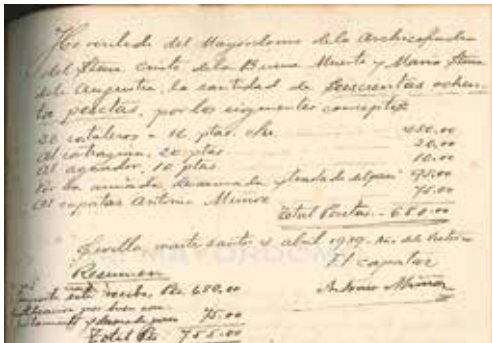 He recibido del Mayordomo de la Archicofradía
del Stmo. Cristo de la Buena Muerte y María Stma.
de la Angustia, la cantidad de seiscientas ochen-
ta pesetas, por los siguientes conceptos
ptas. 450.00
Al contraguía, 20 ptas 20.00
Al aguador, 10 ptas 10.00
Por la armada, desarmada y traslado del paso 95.00
Al capataz Antonio Munoz 75.00
Total Pesetas.- 680.00
Sevilla, martes santo, 4 abril 1939. Año de la Victoria
El capataz
Resumen
Antonio Muñoz
Importe este recibo, Pts. 680.00
por buen
y desarmada paso 75.00
Total Pts. 755.00